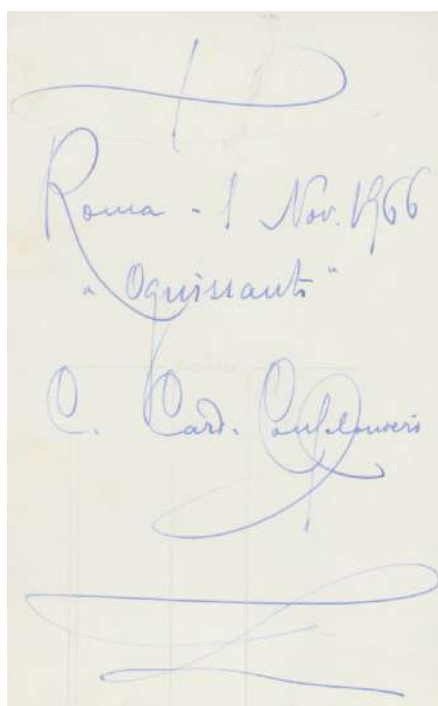 Roma - 1 Nov. 1966
"Ognissanti"
C. Card. Confalonieri